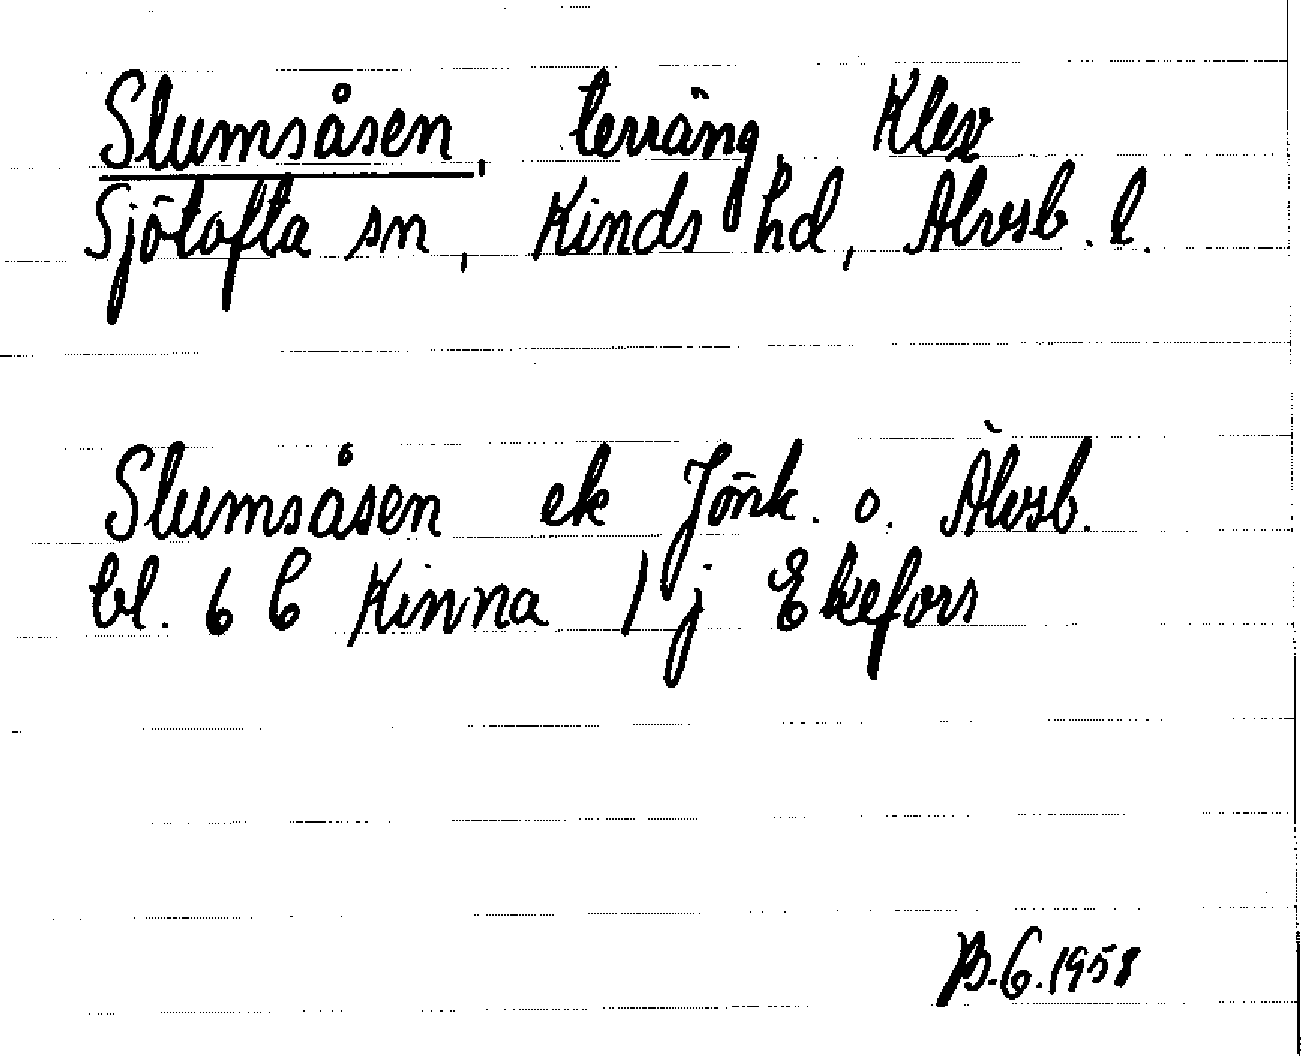 Slumsåsen, terräng, Klev
Sjötofta sn, Kinds hd, Älvsb. l.
Slumsåsen ek Jönk. o. Älvsb.
bl. 6 C Kinna 1 j Ekefors
B.G. 1958